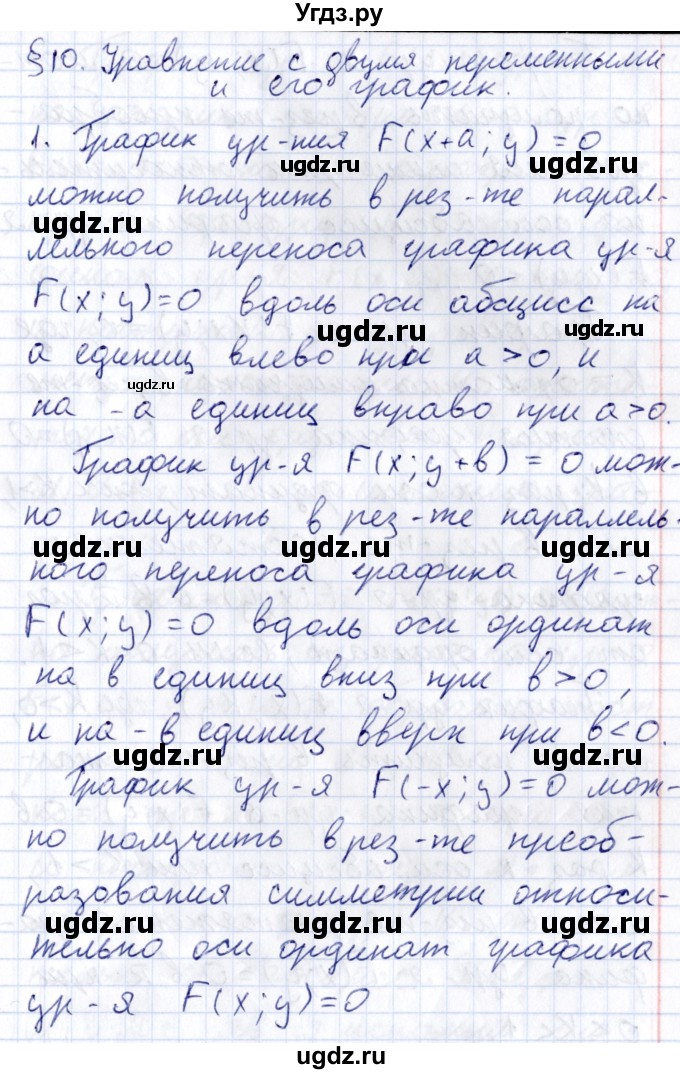 Угдз.ру
§10. Уравнение с двумя переменными
и его график.
1. График ур-ния F(x+a; y)=0
можно получить в рез-те парал-
ugdz.ru ugdz.ru
лельного переноса графика ур-я
F(x; y)=0 вдоль оси абсцисс на
ugdz.ru ugdz.ru
а единиц влево при a>0, и
ugdz.ru
на -а единиц вправо при a>0.
График ур-я F(x; y+в) = 0 мож-
но получить в рез-те параллель-
ugdz.ru ugdz.ru ugdz.ru
ного переноса графика ур-я
F(x; y)=0 вдоль оси ординат
на в единиц вниз при в>0,
и на -в единиц вверх при в<0.
ugdz.ru ugdz.ru
График ур-я F(-x; y)=0 мож-
но получить в рез-те преоб-
разования симметрии относи-
ugdz.ru ugdz.ru ugdz.ru
тельно оси ординат графика
ур-я F(x; y)=0
ugdz.ru